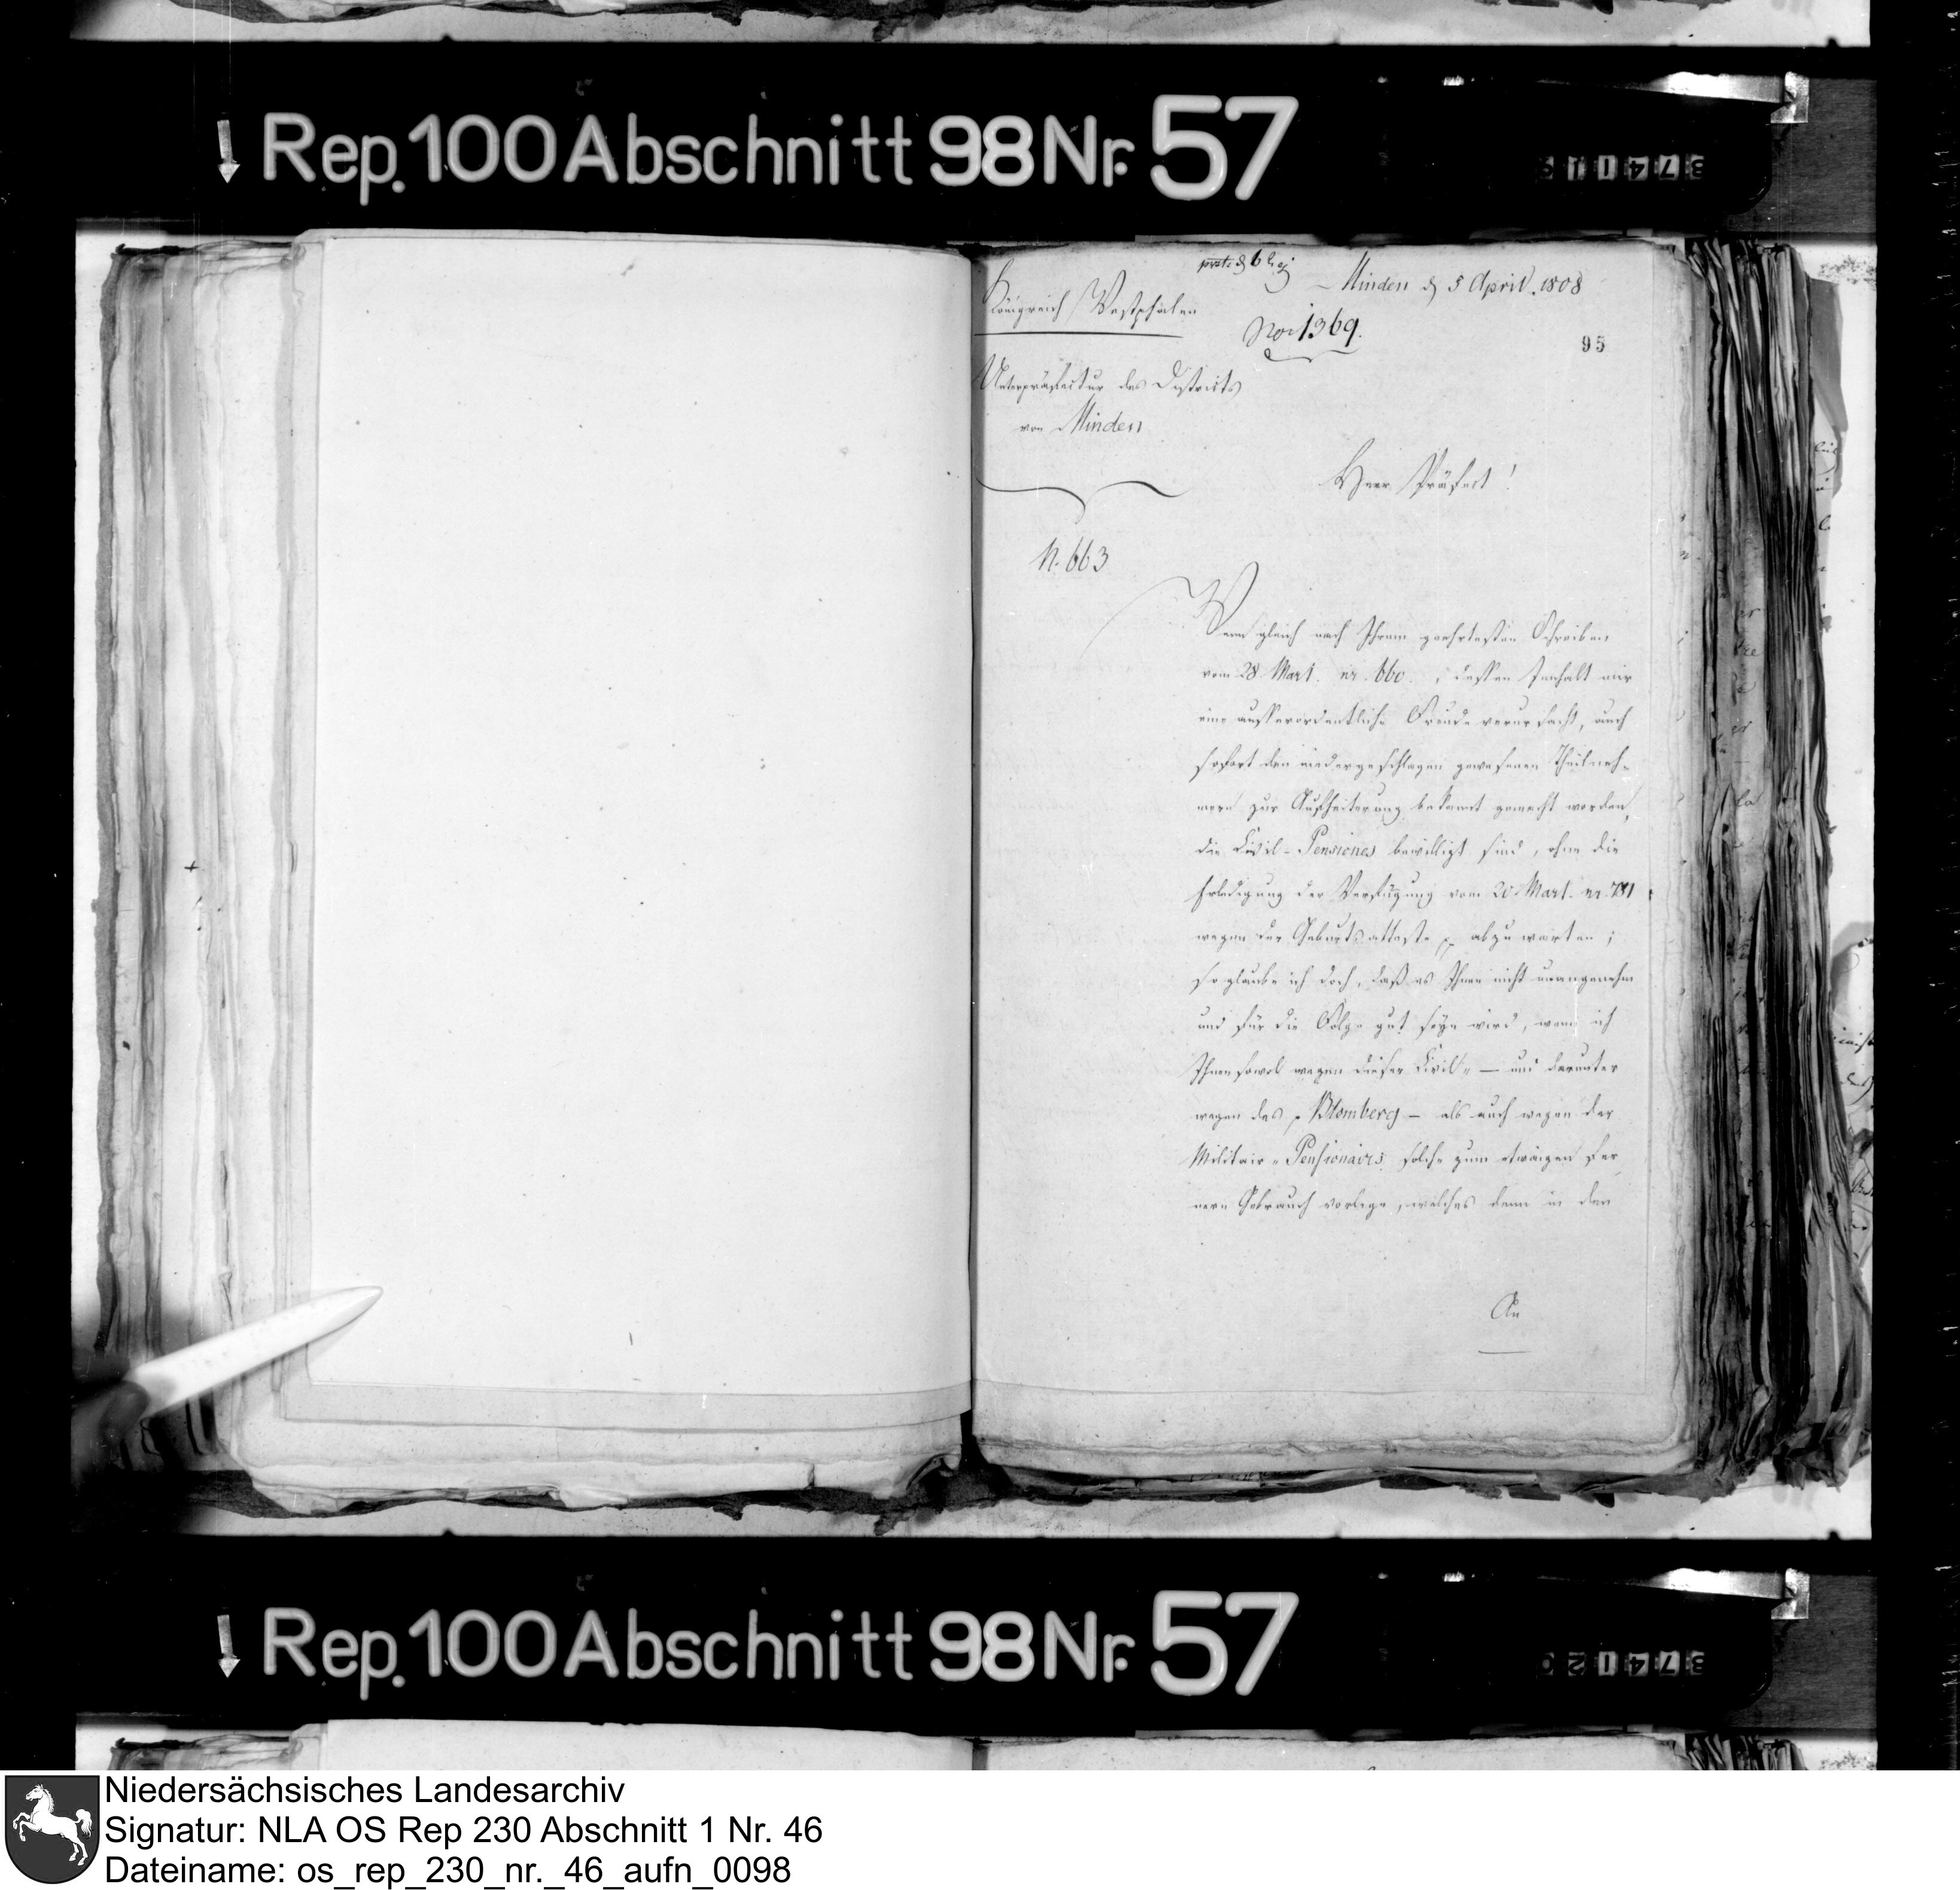 Rep. 100 Abschnitt 98 Nr. 57
praes. d 6 ej
Minden d 5 April. 1808
Königreich Westphalen
Nro 1369.
95
Unterpräfectur des Districts
von Minden
Herr Präfect!
N. 663
Wenn gleich nach Ihrem geehrtesten Schreiben
vom 28 Mart. nr. 660., dessen Innhalt mir
eine ausserordentliche Freude verursacht, auch
sofort den niedergeschlagen gewesenen Theilneh-
mern zur Aufheiterung bekannt gemacht worden,
die Civil-Pensiones bewilligt sind, ohne die
Erledigung der Verfügung vom 20 Mart. nr. 781
wegen der Geburtsatteste pp abzuwarten;
so glaube ich doch, daß es Ihnen nicht unangenehm
und für die Folge gut seyn wird, wenn ich
Ihnen sowol wegen dieser Civil- — und darunter
wegen des p Blomberg — als auch wegen der
Militair-Pensionairs solche zum etwaigen fer
nern Gebrauch vorlege, welches denn in den
An
Rep. 100 Abschnitt 98 Nr. 57
Niedersächsisches Landesarchiv
Signatur: NLA OS Rep 230 Abschnitt 1 Nr. 46
Dateiname: os_rep_230_nr._46_aufn_0098